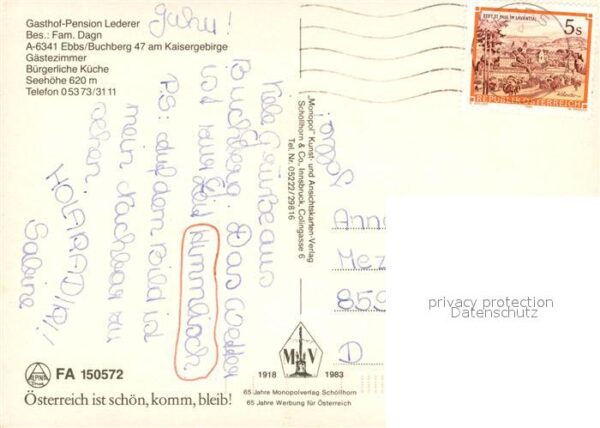 Gasthof-Pension Lederer
Bes.: Fam. Dagn
A-6341 Ebbs/Buchberg 47 am Kaisergebirge
Gästezimmer
Bürgerliche Küche
Seehöhe 620 m
Telefon 0 53 73/31 11
Juhu!
Viele Grüße aus
Buchberg. Das Wetter
ist zur Zeit himmlisch
PS: auf dem Bild ist
mein Nachbar zu
sehen.
HOLARADIRI!!
Sabine
"Monopol" Kunst- und Ansichtskarten-Verlag
Schöllhorn & Co., Innsbruck, Colingasse 6
Tel. Nr. 05222/29816
STIFT ST. PAUL IM LAVANTTAL
5 S
REPUBLIK ÖSTERREICH
Anna
Mez
859
D
privacy protection
Datenschutz
ALPINA
FA 150572
Österreich ist schön, komm, bleib!
M V
1918 1983
65 Jahre Monopolverlag Schöllhorn
65 Jahre Werbung für Österreich